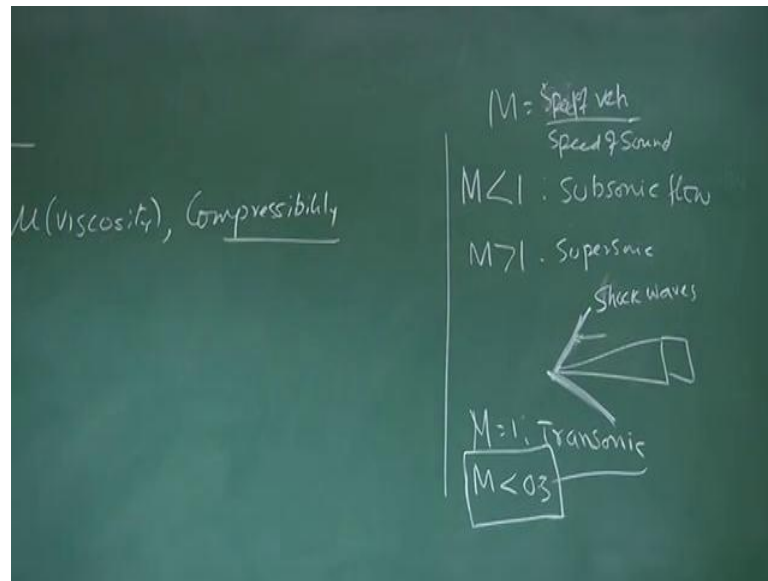 μ(viscosity), Compressibility
M = Speed of veh
Speed of Sound
M<1 : Subsonic flow
M>1 . Supersonic
Shock waves
M=1: Transonic
M<03